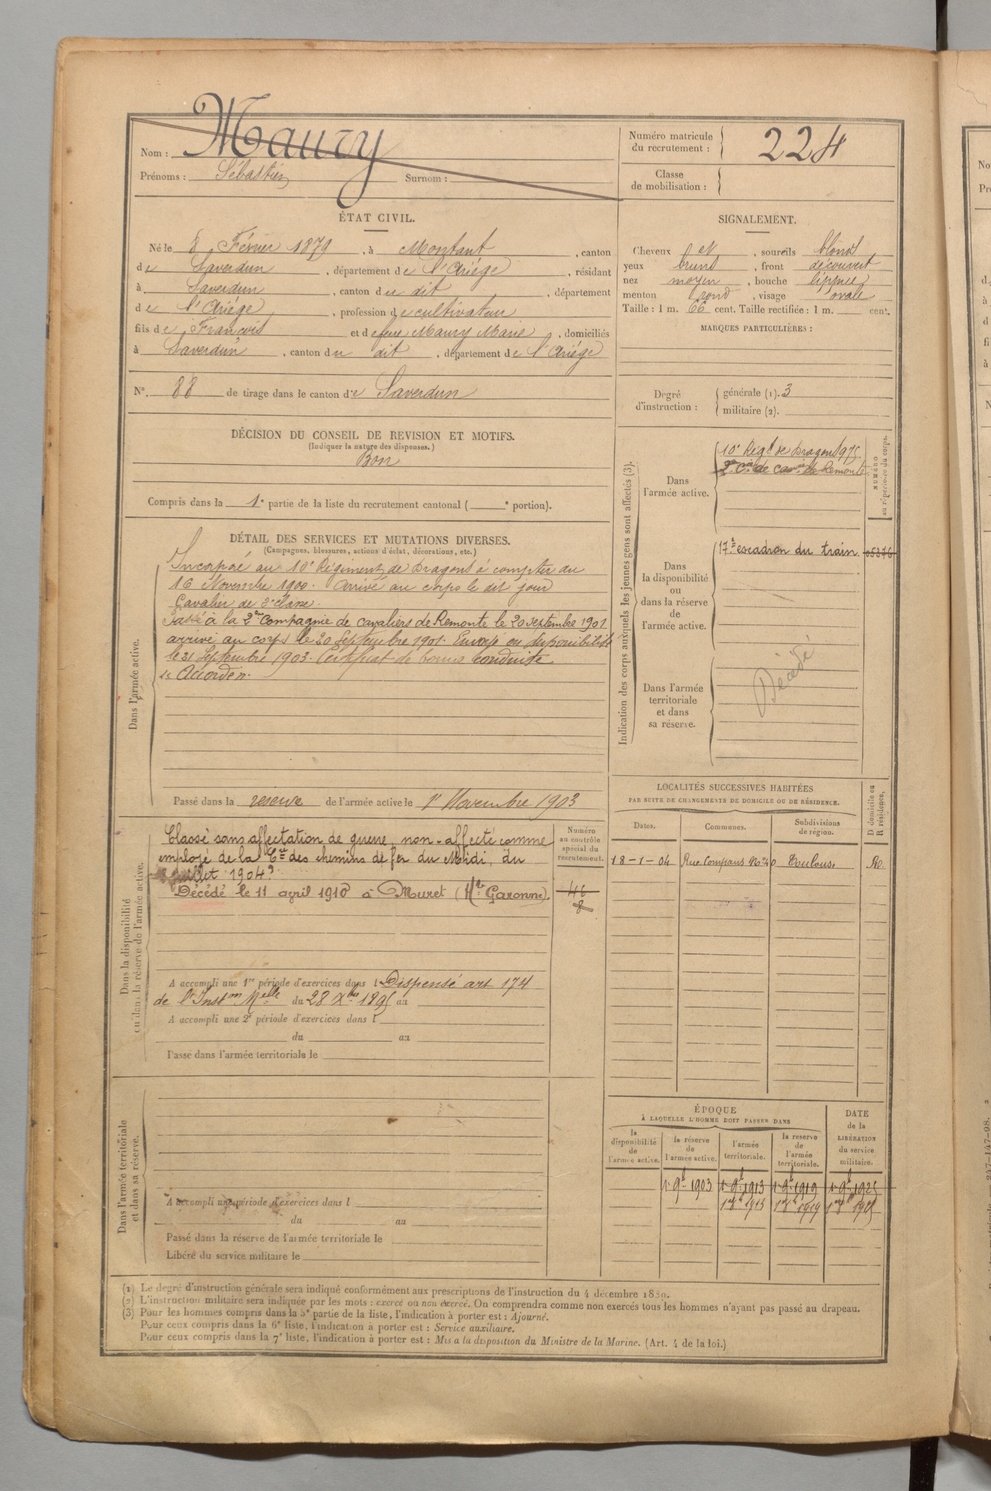 Nom : Maury
Prénoms : Sébastien Surnom :
Numéro matricule du recrutement : 224
Classe de mobilisation :
ÉTAT CIVIL.
Né le 8 Février 1879, à Montaut, canton
de Saverdun, département de l'Ariège, résidant
à Saverdun, canton du dit, département
de l'Ariège, profession de cultivateur
fils de François et de feue Maury Marie, domiciliés
à Saverdun, canton du dit, département de l'Ariège
N° 88 de tirage dans le canton de Saverdun
SIGNALEMENT.
Cheveux et, sourcils blond
yeux bruns, front découvert
nez moyen, bouche lippue
menton rond, visage ovale
Taille : 1 m. 66 cent. Taille rectifiée : 1 m. cent.
MARQUES PARTICULIÈRES :
Degré d'instruction : générale (1). 3
militaire (2).
DÉCISION DU CONSEIL DE REVISION ET MOTIFS.
(Indiquer la nature des dispenses.)
Bon
Compris dans la 1e partie de la liste du recrutement cantonal ( e portion).
DÉTAIL DES SERVICES ET MUTATIONS DIVERSES.
(Campagnes, blessures, actions d'éclat, décorations, etc.)
Dans l'armée active.
Incorporé au 10e Régiment de Dragons à compter du
16 Novembre 1900. Arrivé au corps le dit jour
Cavalier de 2e classe.
Passé à la 2me Compagnie de cavaliers de Remonte le 20 septembre 1901
arrivé au corps le 20 Septembre 1901. Envoyé en disponibilité
le 21 Septembre 1903. Certificat de bonne conduite
"Accordé".
Passé dans la reserve de l'armée active le 1er Novembre 1903
Indication des corps auxquels les jeunes gens sont affectés (3).
NUMÉRO au répertoire du corps.
Dans l'armée active.
10e Régt de Dragons 975
2e Cie de cavrs de Remonte
Dans la disponibilité ou dans la réserve de l'armée active.
17e escadron du train
Dans l'armée territoriale et dans sa réserve.
Décédé
Dans la disponibilité ou dans la réserve de l'armée active.
Classé sans affectation de guerre, non-affecté comme
employé de la Cie des chemins de fer du Midi, du
Juillet 1904.
Décédé le 11 avril 1910 à Muret (Hte Garonne).
Numéro au contrôle spécial du recrutement.
A accompli une 1re période d'exercices dans l Dispensé art 174
de l'Inston Melle du 28 Xbre 1895 au
A accompli une 2e période d'exercices dans l
du au
Passé dans l'armée territoriale le
LOCALITÉS SUCCESSIVES HABITÉES
PAR SUITE DE CHANGEMENTS DE DOMICILE OU DE RÉSIDENCE.
Dates. Communes. Subdivisions de région. D domicile ou R résidence.
18-1-04 Rue Compans Toulouse R
Dans l'armée territoriale et dans sa réserve.
A accompli une période d'exercices dans l
du au
Passé dans la réserve de l'armée territoriale le
Libéré du service militaire le
ÉPOQUE
À LAQUELLE L'HOMME DOIT PASSER DANS
la disponibilité de l'armée active.
la réserve de l'armée active.
l'armée territoriale.
la réserve de l'armée territoriale.
DATE de la LIBÉRATION du service militaire.
1 9b 1903 1 9b 1913 1 9b 1919 1 9b 1925
1 8b 1913 1 8b 1919 1 8b 1925
(1) Le degré d'instruction générale sera indiqué conformément aux prescriptions de l'instruction du 4 décembre 1889.
(2) L'instruction militaire sera indiquée par les mots : exercé ou non exercé. On comprendra comme non exercés tous les hommes n'ayant pas passé au drapeau.
(3) Pour les hommes compris dans la 5e partie de la liste, l'indication à porter est : Ajourné.
Pour ceux compris dans la 6e liste, l'indication à porter est : Service auxiliaire.
Pour ceux compris dans la 7e liste, l'indication à porter est : Mis à la disposition du Ministre de la Marine. (Art. 4 de la loi.)